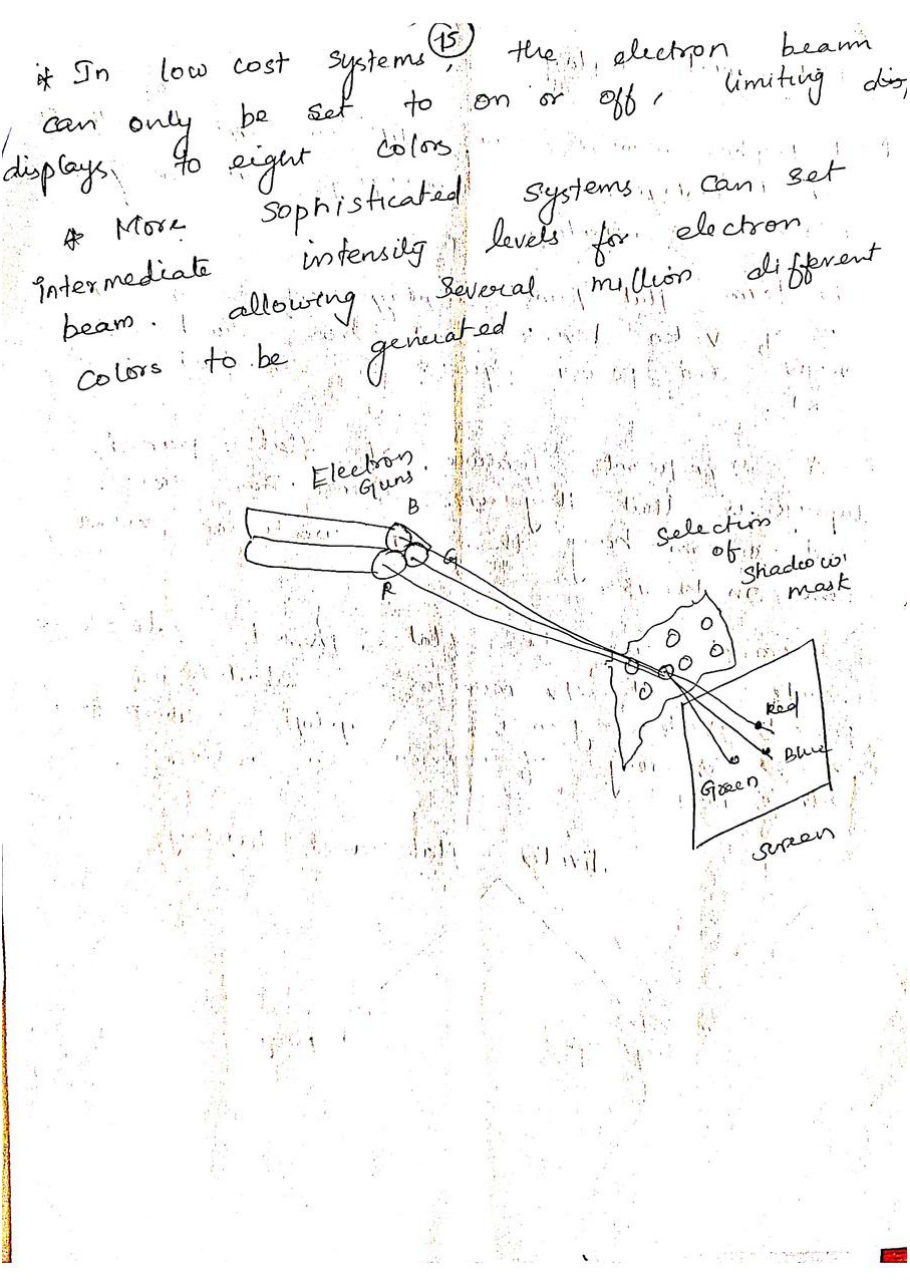 15
* In low cost systems, the electron beam
can only be set to on or off, limiting dis
displays to eight colors
* More sophisticated systems can set
intermediate intensity levels for electron
beam. allowing several million different
colors to be generated.
Electron
Guns.
B
G
R
Selection
of
Shadow
mask
Red
Blue
Green
screen